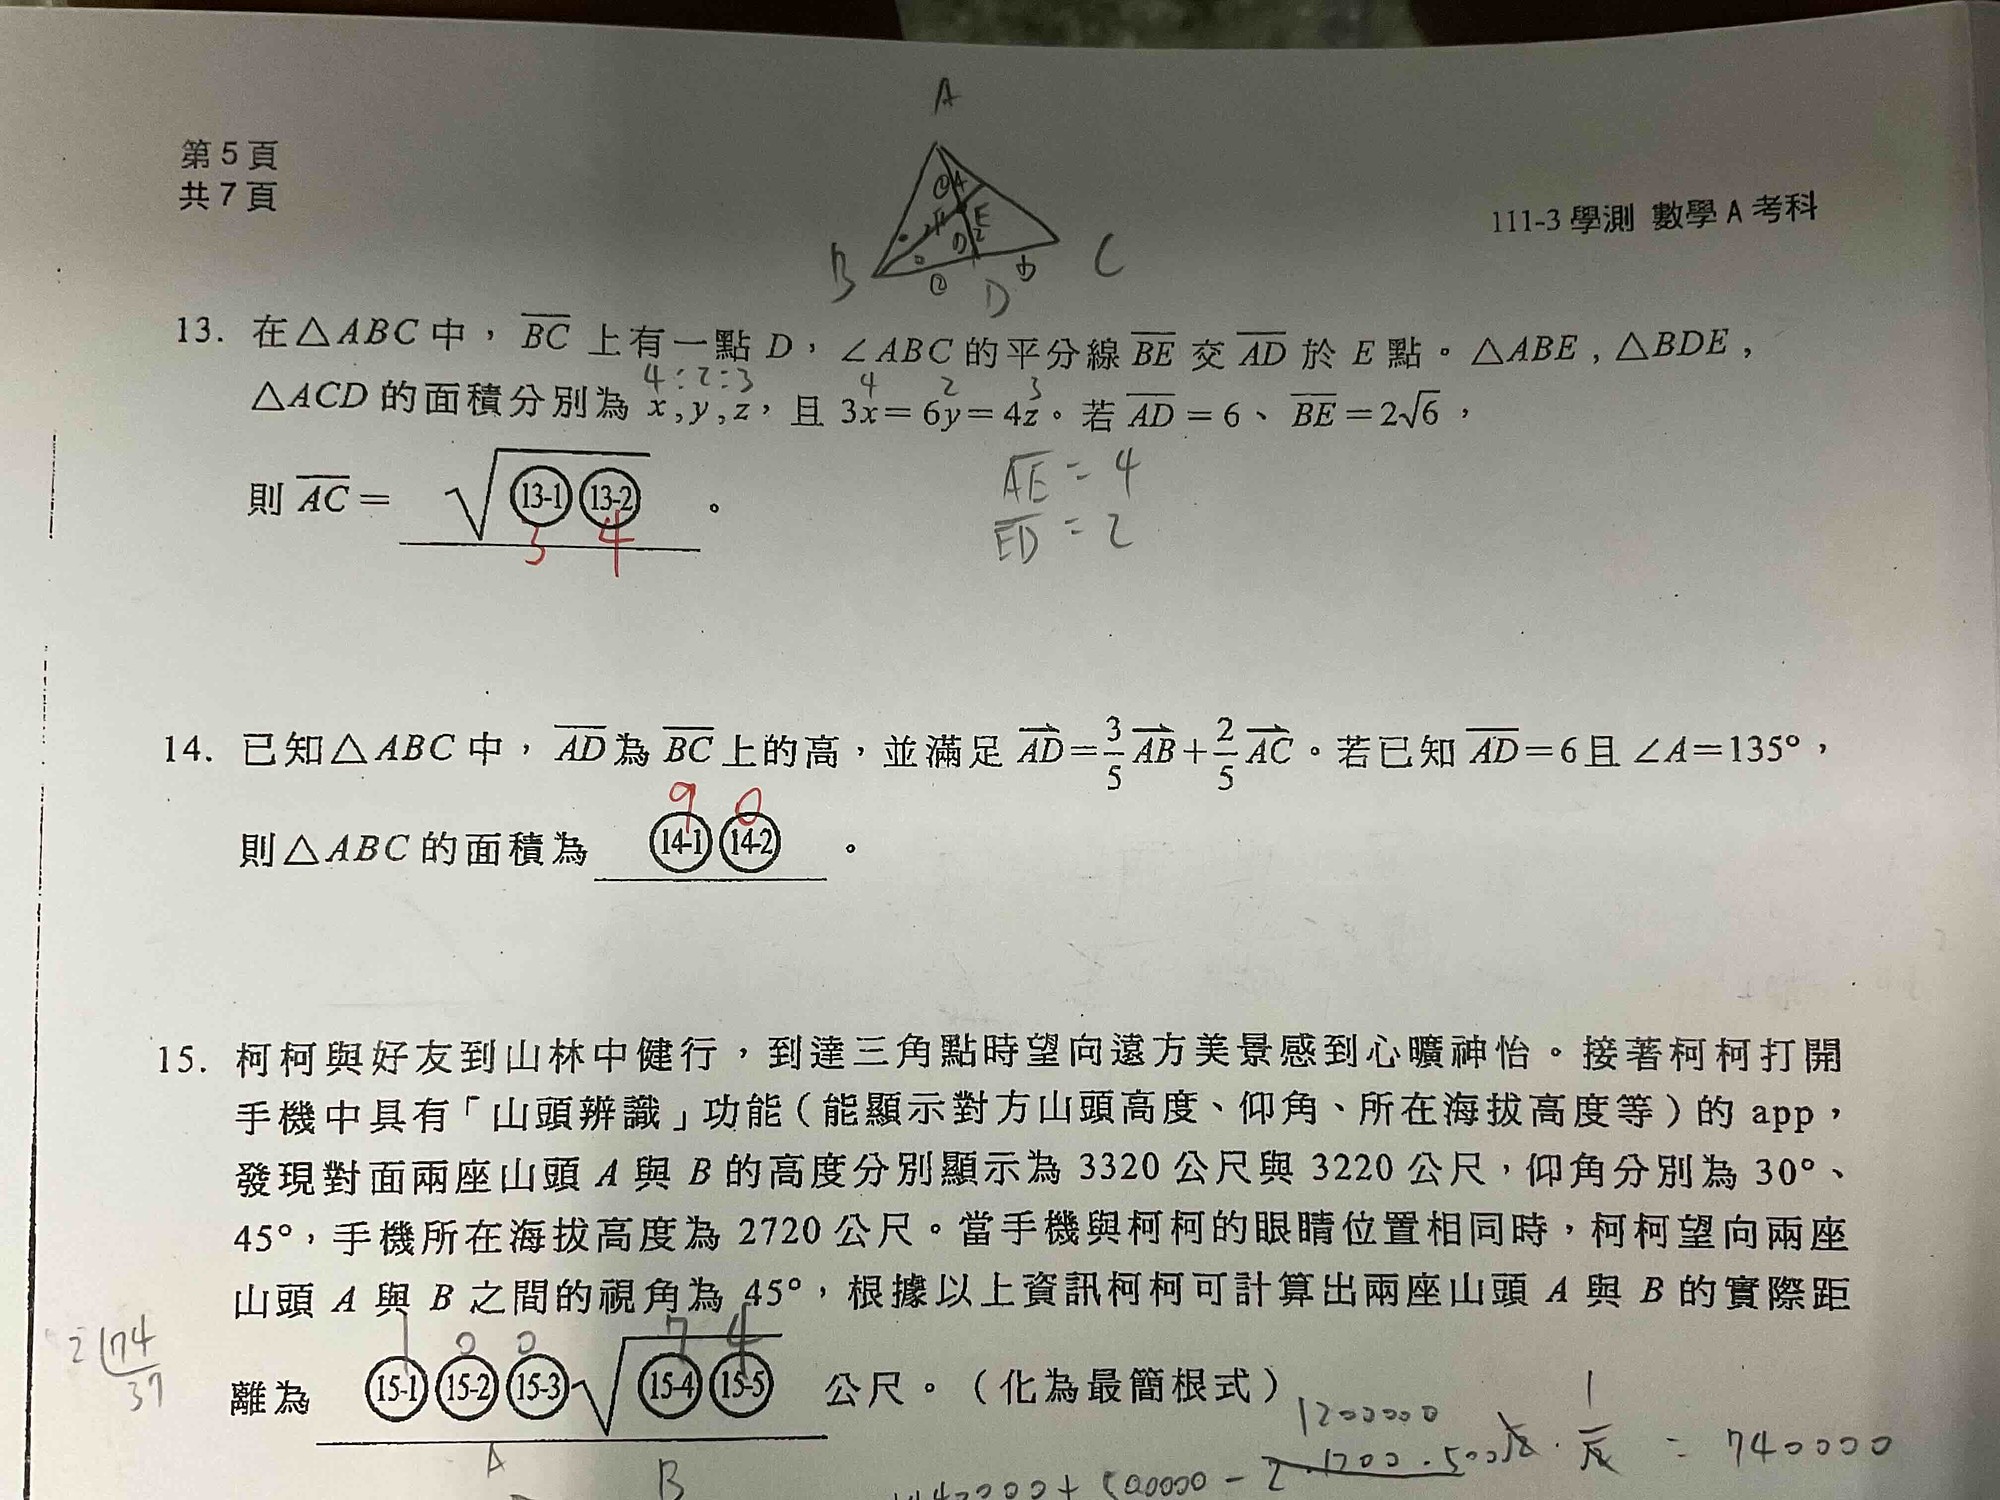 A
第5頁
共7頁
111-3學測 數學A考科
B ② D ① C
13. 在△ABC中，BC上有一點D，∠ABC的平分線BE交AD於E點。△ABE, △BDE,
4:2:3 4 2 3
△ACD的面積分別為x,y,z，且3x=6y=4z。若AD=6、BE=2√6，
則AC= √(13-1)(13-2)。
3 4
AE = 4
ED = 2
14. 已知△ABC中，AD為BC上的高，並滿足AD=3/5AB+2/5AC。若已知AD=6且∠A=135°，
9 0
則△ABC的面積為 (14-1)(14-2)。
15. 柯柯與好友到山林中健行，到達三角點時望向遠方美景感到心曠神怡。接著柯柯打開
手機中具有「山頭辨識」功能（能顯示對方山頭高度、仰角、所在海拔高度等）的app，
發現對面兩座山頭A與B的高度分別顯示為3320公尺與3220公尺，仰角分別為30°、
45°，手機所在海拔高度為2720公尺。當手機與柯柯的眼睛位置相同時，柯柯望向兩座
山頭A與B之間的視角為45°，根據以上資訊柯柯可計算出兩座山頭A與B的實際距
1 0 0 7 4
2 74
37
離為 (15-1)(15-2)(15-3)√(15-4)(15-5) 公尺。（化為最簡根式）
1200000
A
B
= 740000